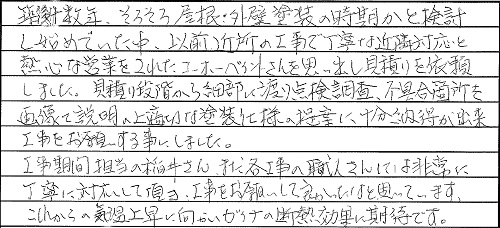 築数年、そろそろ屋根・外壁塗装の時期かと検討
し始めていた中、以前近所の工事で丁寧な近隣対応と
熱心な営業をされたユーホーペイントさんを思い出し見積りを依頼
しました。見積り段階から細部に渡り点検調査、不具合箇所を
画像で説明の上適切な塗装仕様の提案に十分納得が出来
工事をお願いする事にしました。
工事期間担当の稲井さん、また各工事の職人さんには非常に
丁寧に対応して頂き、工事をお願いして良かったなと思っています。
これからの気温上昇に向かいガイナの断熱効果に期待です。